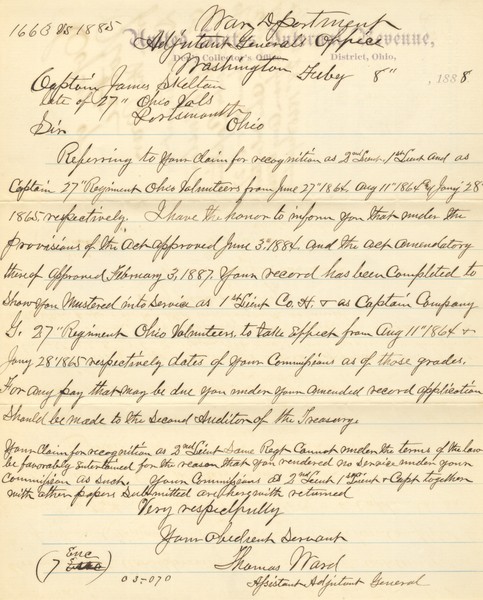 1663 VS 1885 War Department
United States Internal Revenue,
Adjutant General's Office
Deputy Collector's Office, District, Ohio,
Washington Feby 8" , 1888
Captain James Skelton
late of 27" Ohio Vols
Portsmouth
Sir Ohio
Referring to your Claim for recognition as 2nd Lieut. 1st Lieut and as
Captain 27" Regiment Ohio Volunteers from June 27" 1864, Aug 11" 1864 & Jany 28"
1865 respectively. I have the honor to inform you that under the
provisions of the Act approved June 3d 1884 and the act amendatory
thereof approved February 3, 1887. your record has been Completed to
show you Mustered into service as 1st Lieut Co. H. & as Captain Company
G. 27" Regiment Ohio Volunteers. to take Effect from Aug 11" 1864 &
Jany 28" 1865 respectively dates of your Commissions as of those grades.
For any pay that may be due you under your amended record application
should be made to the Second Auditor of the Treasury.
Your Claim for recognition as 2nd Lieut Same Regt Cannot under the terms of the law
be favorably Entertained for the reason that you rendered no service under your
Commission as such. your Commissions as 2nd Lieut 1st Lieut & Capt together
with other papers submitted are herewith returned
Very respectfully
Your Obedient Servant
Thomas Ward
Assistant Adjutant General
(7 Enc
03-070